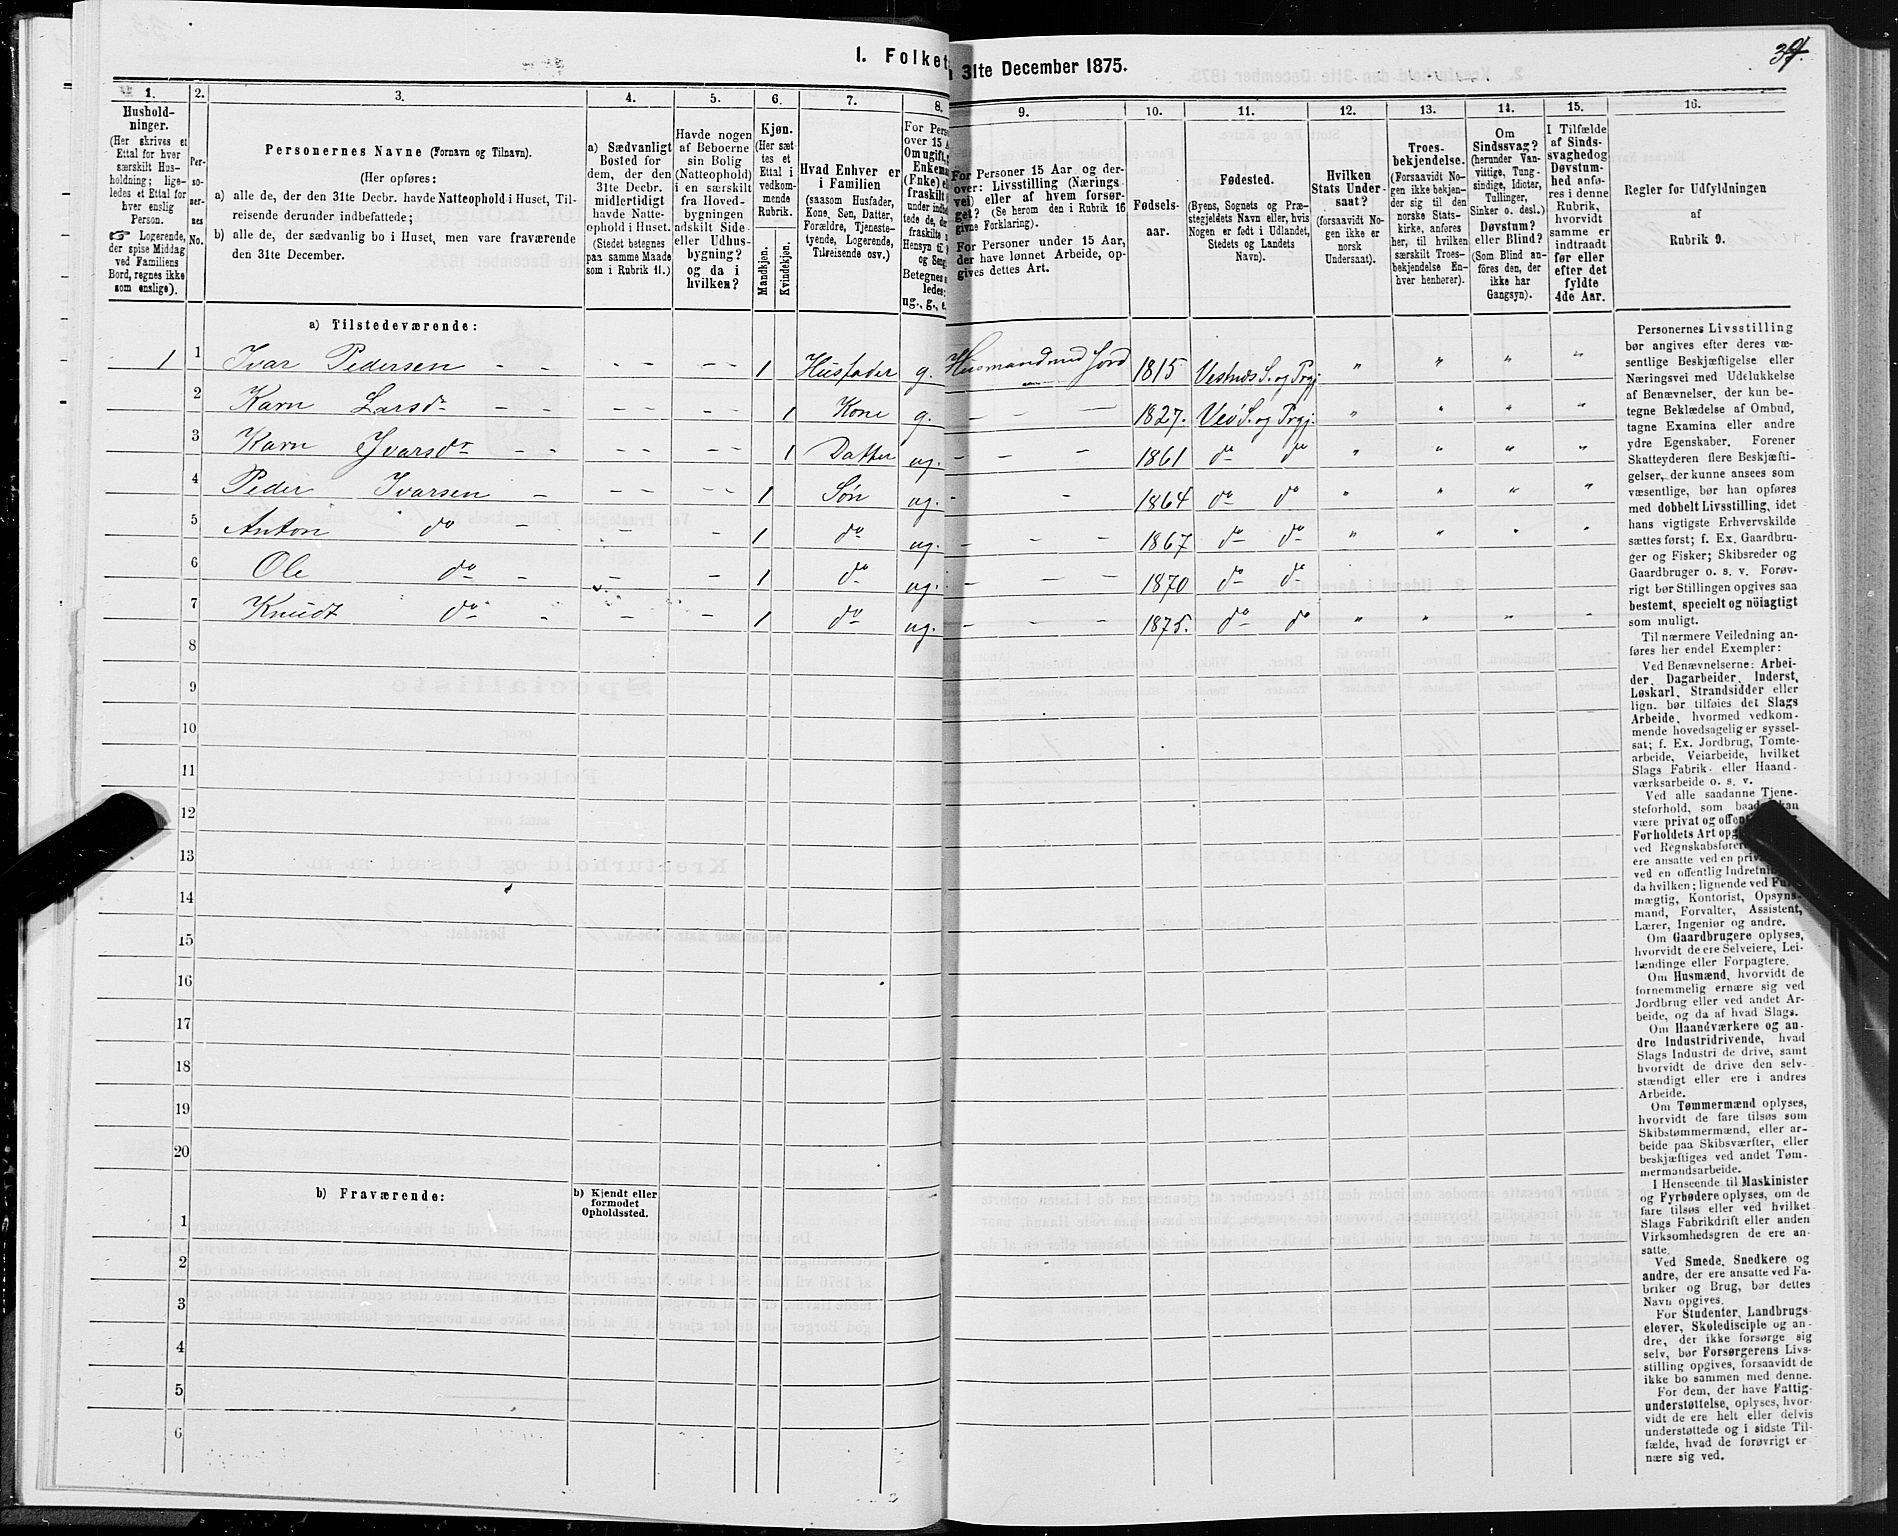 39.
1. Folket
31te December 1875.
1.
2.
3.
4.
5.
6.
7.
8.
9.
10.
11.
12.
13.
14.
15.
16.
Hushold-
ninger.
(Her skrives et
Ettal for hver
særskilt Hus-
holdning; lige-
ledes et Ettal for
hver enslig
Person.
☞ Logerende,
der spise Middag
ved Familiens
Bord, regnes ikke
som enslige).
Per-
so-
ner-
nes
No.
Personernes Navne (Fornavn og Tilnavn).
(Her opføres:
a) alle de, der den 31te Decbr. havde Natteophold i Huset, Til-
reisende derunder indbefattede;
b) alle de, der sædvanlig bo i Huset, men vare fraværende
den 31te December.
a) Sædvanligt
Bosted for
dem, der den
31te Decbr.
midlertidigt
havde Natte-
ophold i Huset.
(Stedet betegnes
paa samme Maade
som i Rubrik 11.)
Havde nogen
af Beboerne
sin Bolig
(Natteophold)
i en særskilt
fra Hoved-
bygningen
adskilt Side-
eller Udhus-
bygning?
og da i
hvilken?
Kjøn.
(Her sæt-
tes et
Ettal i
vedkom-
mende
Rubrik.
Mandkjøn.
Kvindekjøn.
Hvad Enhver er
i Familien
(saasom Husfader,
Kone, Søn, Datter,
Forældre, Tjeneste-
tyende, Logerende,
Tilreisende osv.)
For Pers
over 15 A
Om ugift,
Enkema
(Enke) el
fraskilt
under indb
tede de, de
fraskilte
Hensyn til
og Seng
Betegnes s
ledes:
ug., g., e.
For Personer 15 Aar og der-
over: Livsstilling (Nærings-
vei) eller af hvem forsør-
get? (Se herom den i Rubrik 16
givne Forklaring).
For Personer under 15 Aar,
der have lønnet Arbeide, op-
gives dettes Art.
Fødsels-
aar.
Fødested.
(Byens, Sognets og Præ-
stegjeldets Navn eller, hvis
Nogen er født i Udlandet,
Stedets og Landets
Navn).
Hvilken
Stats Under-
saat?
(forsaavidt No-
gen ikke er
norsk
Undersaat).
Troes-
bekjendelse.
(Forsaavidt No-
gen ikke bekjen-
der sig til den
norske Stats-
kirke, anføres
her, til hvilken
særskilt Troes-
bekjendelse En-
hver henhører).
Om
Sindssvag?
(herunder Van-
vittige, Tung-
sindige, Idioter,
Tullinger,
Sinker o. desl.)
Døvstum?
eller Blind?
(Som Blind an-
føres den, der
ikke har
Gangsyn).
I Tilfælde
af Sinds-
svaghed og
Døvstum-
hed anfø-
res i denne
Rubrik,
hvorvidt
samme er
indtraadt
før eller
efter det
fyldte
4de Aar.
Regler for Udfyldningen
af
Rubrik 9.
a) Tilstedeværende:
1 1 Ivar Pedersen - - - - - - 1 Husfader g. Husmand med Jord 1815 Vestnes S. og Prgj. " " " "
2 Karn Larsdr - - - - - - 1 Kone g. - - - 1827. Veø S. og Prgj. " " " "
3 Karn Ivarsdr - - - - - - 1 Datter ug. - - - 1861 do do " " " "
4 Peder Ivarsen - - - - - 1 Søn ug. - - 1864 do do " " " "
5 Anton do - - - 1 do ug. - - - 1867 do do " " " "
6 Ole do - - - 1 do ug. 1870 do do
7 Knudt do - - - 1 do ug. - - - 1875. do do " " " "
8
9
10
11
12
13
14
15
16
17
18
19
20
b) Fraværende:
b) Kjendt eller
formodet
Opholdssted.
1
2
3
4
5
6
Personernes Livsstilling
bør angives efter deres væ-
sentlige Beskjæftigelse eller
Næringsvei med Udelukkelse
af Benævnelser, der kun be-
tegne Beklædelse af Ombud,
tagne Examina eller andre
ydre Egenskaber. Forener
Skatteyderen flere Beskjæfti-
gelser, der kunne ansees som
væsentlige, bør han opføres
med dobbelt Livsstilling, idet
hans vigtigste Erhvervskilde
sættes først; f. Ex. Gaardbru-
ger og Fisker; Skibsreder og
Gaardbruger o. s. v. Forøv-
rigt bør Stillingen opgives saa
bestemt, specielt og nöiagtigt
som muligt.
Til nærmere Veiledning an-
føres her endel Exempler:
Ved Benævnelserne: Arbei-
der, Dagarbeider, Inderst,
Løskarl, Strandsidder eller
lign. bør tilføies det Slags
Arbeide, hvormed vedkom-
mende hovedsagelig er syssel-
sat; f. Ex. Jordbrug, Tomte-
arbeide, Veiarbeide, hvilket
Slags Fabrik- eller Haand-
værksarbeide o. s. v.
Ved alle saadanne Tjene-
steforhold, som baade kan
være privat og offent
Forholdets Art opg
ved Regnskabsfører
ere ansatte ved en priv
ved en offentlig Indretnin
da hvilken; lignende ved Ful
mægtig, Kontorist, Opsyns-
mand, Forvalter, Assistent,
Lærer, Ingeniør og andre.
Om Gaardbrugere oplyses,
hvorvidt de ere Selveiere, Lei-
lændinge eller Forpagtere.
Om Husmænd, hvorvidt de
fornemmelig ernære sig ved
Jordbrug eller ved andet Ar-
beide, og da af hvad Slags.
Om Haandværkere og an-
dre Industridrivende, hvad
Slags Industri de drive, samt
hvorvidt de drive den selv-
stændigt eller ere i andres
Arbeide.
Om Tømmermænd oplyses,
hvorvidt de fare tilsøs som
Skibstømmermænd, eller ar-
beide paa Skibsværfter, eller
beskjæftiges ved andet Tøm-
mermandsarbeide.
I Henseende til Maskinister
og Fyrbødere oplyses, om de
fare tilsøs eller ved hvilket
Slags Fabrikdrift eller anden
Virksomhedsgren de ere an-
satte.
Ved Smede, Snedkere og
andre, der ere ansatte ved Fa-
briker og Brug, bør dettes
Navn opgives.
For Studenter, Landbrugs-
elever, Skoledisciple og an-
dre, der ikke forsørge sig
selv, bør Forsørgerens Livs-
stilling opgives, forsaavidt de
ikke bo sammen med denne.
For dem, der have Fattig-
understøttelse, oplyses, hvor-
vidt de ere helt eller delvis
understøttede og i sidste Til-
fælde, hvad de forøvrigt er
nære sig ved.